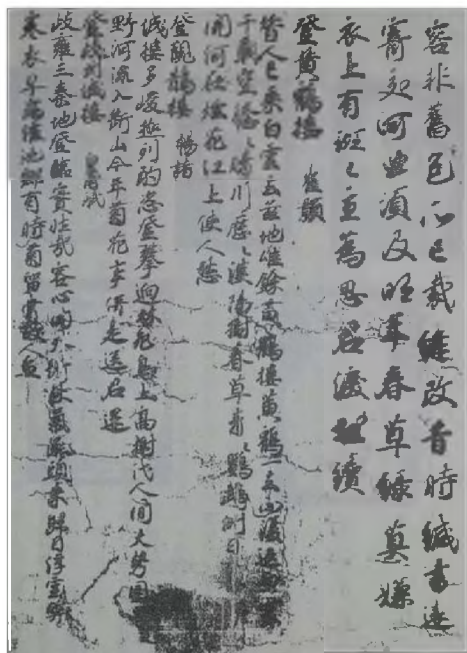 容非舊色 已裁縫改昔時緘書遠
寄交河曲須及明年春草綠莫嫌
衣上有斑〻主為思君淚相續
登黃鶴樓 崔顥
昔人已乘白雲去茲地唯餘黃鶴樓黃鶴一去不復返白雲
千載空悠〻晴川歷〻漢陽樹春草青〻鸚鵡洲日
關何處 煙花江上使人愁
登鸛鵲樓 暢諸
城樓多峻極列酌恣登攀迥林飛鳥上高榭代人間天勢圍平
野河流入斷山今年菊花事併是送君還
登岐州城樓 皇甫斌
岐雍三秦地登臨實壯哉客心
寒衣早 池 有時菊留賞數人